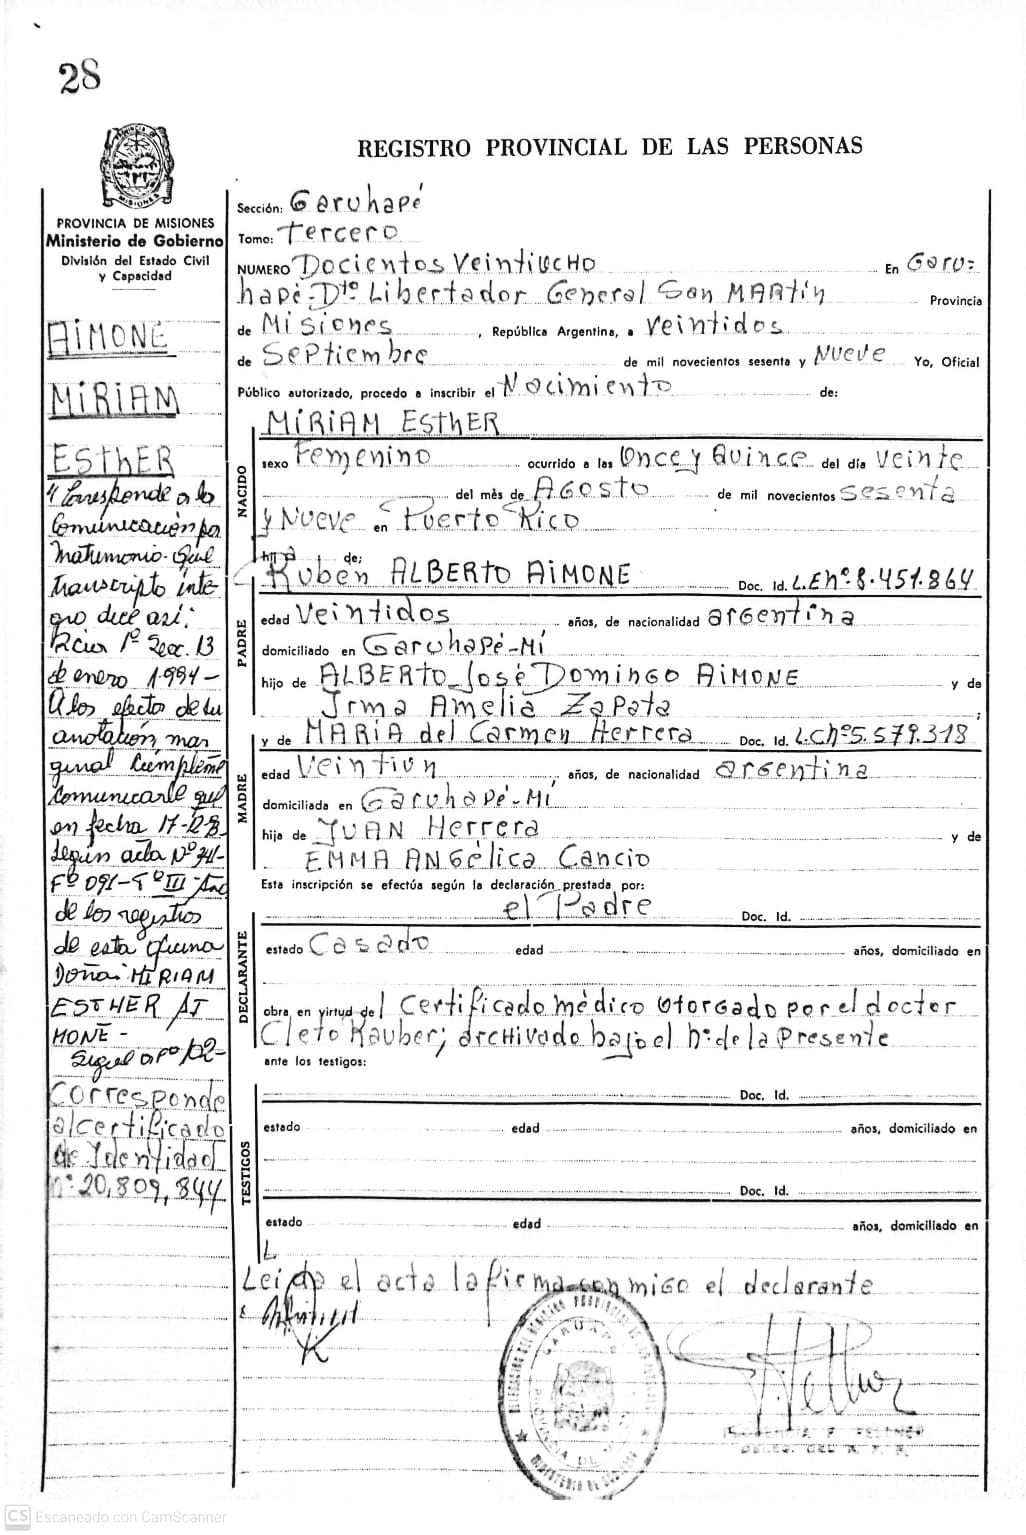 28
REGISTRO PROVINCIAL DE LAS PERSONAS
PROVINCIA DE MISIONES
Ministerio de Gobierno
División del Estado Civil
y Capacidad
AIMONE
MIRIAM
ESTHER
"Corresponde a la
Comunicación por
Matrimonio. Que
transcripto ínte-
gro dice así:
Rcia 1º Secc. 13
de enero 1.994-
A los efectos de su
anotación mar
ginal cumpleme
comunicarle que
en fecha 17-12-93
según acta Nº 741-
Fº 091-Tº III-Año
de los registros
de esta oficina
Doña: MIRIAM
ESTHER AI
MONE-
Sigue al Fº 102-
Corresponde
al certificado
de Ydentidad
nº: 20,809,844
Sección: Garuhapé
Tomo: Tercero
NUMERO Docientos Veintiocho En Garu-
hapé-Dto Libertador General San Martín Provincia
de Misiones, República Argentina, a Veintidos
de Septiembre de mil novecientos sesenta y Nueve Yo, Oficial
Público autorizado, procedo a inscribir el Nacimiento de:
MIRIAM ESTHER
NACIDO
sexo Femenino ocurrido a las Once y Quince del día veinte
del mès de Agosto de mil novecientos sesenta
y Nueve en Puerto Rico
hija de;
PADRE
Rubén ALBERTO AIMONE Doc. Id. L.E nº. 8.451.864
edad Veintidos años, de nacionalidad argentina
domiciliado en Garuhapé-Mí
hijo de ALBERTO José Domingo AIMONE y de
Irma Amelia Zapata;
MADRE
y de MARIA del Carmen Herrera Doc. Id. L.C nº 5.579.318
edad Veintiun años, de nacionalidad argentina
domiciliada en Garuhapé-Mí
hija de JUAN Herrera y de
EMMA ANGélica Cancio
Esta inscripción se efectúa según la declaración prestada por:
DECLARANTE
el Padre Doc. Id.
estado Casado edad años, domiciliado en
obra en virtud del Certificado médico otorgado por el doctor
Cleto Rauber; archivado bajo el nº: de la Presente
ante los testigos:
TESTIGOS
Doc. Id.
estado edad años, domiciliado en
Doc. Id.
estado edad años, domiciliado en
L
Leida el acta la firma conmigo el declarante
GARUHAPE
PROVINCIA DE
MINISTERIO DE GOBIERNO
F. FELLNER
DELEG. DEL R. P. P.
CS Escaneado con CamScanner